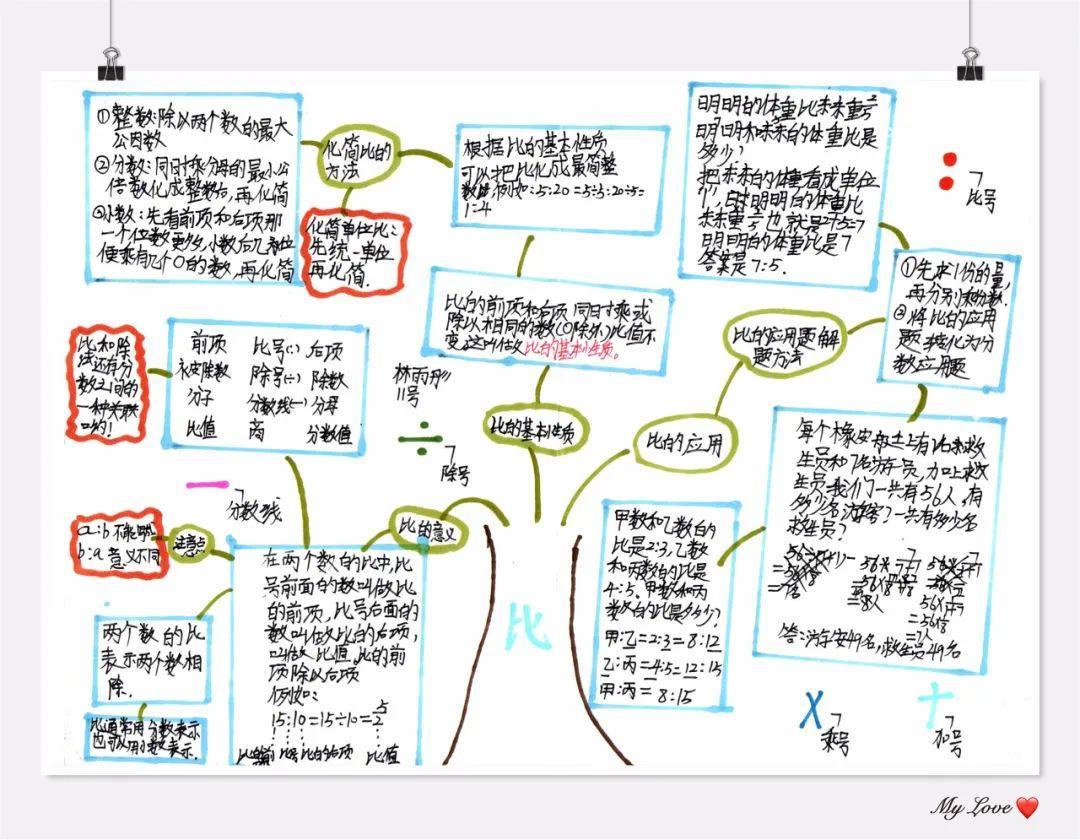 ①整数:除以两个数的最大
公因数
②分数:同时乘分母的最小公
倍数化成整数后,再化简
③小数:先看前项和后项那
一个位数更多,小数后几位
便乘有几个0的数,再化简
化简比的
方法
化简单位比:
先统一单位
再化简.
根据比的基本性质
可以把比化成最简整
数比,例如:5:20=5÷5:20÷5=
1:4
明明的体重比未未重
明明和未未的体重比是
多少?
把未未的体重看成单位
"1",
明明的体重比是7
答案是7:5.
比号
①先求1份的量,
再分别求的数.
②将比的应用
题转化为分
数应用题
比的应用题解
题方法
比的应用
比的前项和后项同时乘或
除以相同的数(0除外)比值不
变,这叫做比的基本性质。
比的基本性质
林雨彤
11号
除号
比和除
法还有分
数之间的
一种关联
哟!
前项 比号(:) 后项
被除数 除号(÷) 除数
分子 分数线(一) 分母
比值 商 分数值
分数线
比的意义
注意点
a:b不能
b:a意义不同
两个数的比
表示两个数相
除.
比通常用分数表示
也可以用小数表示.
在两个数的比中,比
号前面的数叫做比
的前项,比号后面的
数叫做比的后项,
叫做比值.比的前
项除以后项
例如:
15:10=15÷10=
比的前项 比号 比的后项 比值
比
甲数和乙数的
比是2:3,乙数
和丙数的比是
4:5.甲数和丙
数的比是多少?
甲:乙=2:3=8:12
乙:丙=4:5=12:15
甲:丙=8:15
每个橡皮艇上有1名救
生员和7名游客,加上救
生员,我们一共有56人,有
多少名游客?一共有多少名
救生员?
=7人
答:游客49名,救生员49名
乘号
加号
My Love